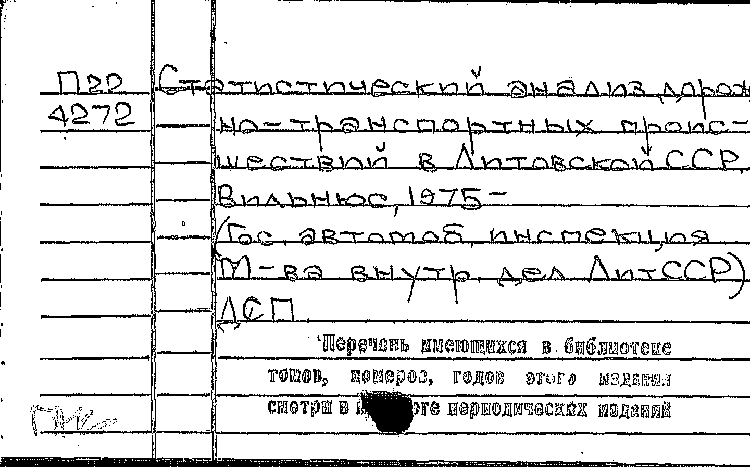 П22 Статистический анализ дорож
4272 но-транспортных проис-
шествий в Литовской ССР.
Вильнюс, 1975-
(Гос. автомоб. инспекция
М-ва внутр. дел ЛитССР)
ДСП.
Перечень имеющихся в библиотеке
томов, номеров, годов этого издания
смотри в периодических изданий